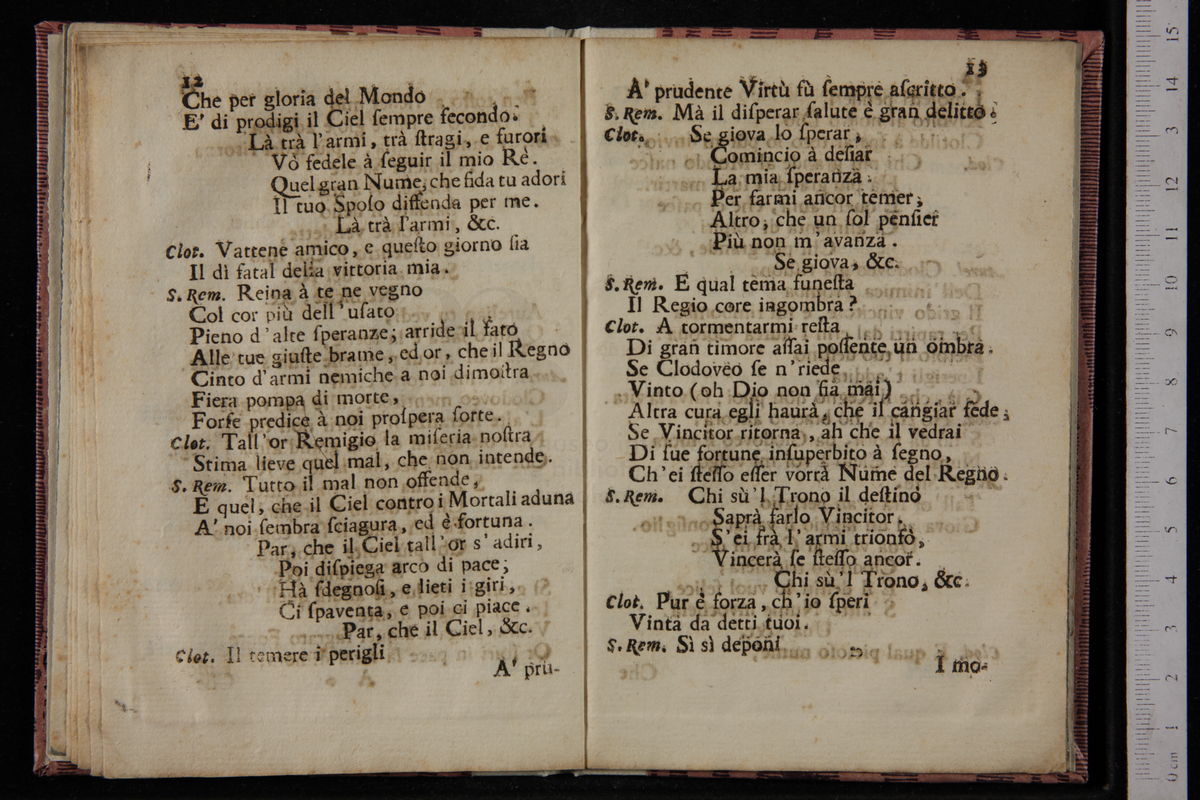 12
Che per gloria del Mondo
E' di prodigi il Ciel ſempre fecondo.
Là trà l'armi, trà ſtragi, e furori
Vò fedele à ſeguir il mio Rè.
Quel gran Nume, che fida tu adori
Il tuo Spoſo diffenda per me.
Là trà l'armi, &c.
Clot. Vattene amico, e queſto giorno ſia
Il dì fatal della vittoria mia.
S. Rem. Reina à te ne vegno
Col cor più dell'uſato
Pieno d'alte ſperanze; arride il fato
Alle tue giuſte brame, ed or, che il Regno
Cinto d'armi nemiche a noi dimoſtra
Fiera pompa di morte,
Forſe predice à noi proſpera ſorte.
Clot. Tall'or Remigio la miſeria noſtra
Stima lieve quel mal, che non intende.
S. Rem. Tutto il mal non offende,
E quel, che il Ciel contro i Mortali aduna
A' noi ſembra ſciagura, ed è fortuna.
Par, che il Ciel tall'or s'adiri,
Poi diſpiega arco di pace;
Hà ſdegnoſi, e lieti i giri,
Ci ſpaventa, e poi ci piace.
Par, che il Ciel, &c.
Clot. Il temere i perigli
A' pru-
13
A' prudente Virtù fù ſempre aſcritto.
S. Rem. Mà il diſperar ſalute è gran delitto.
Clot. Se giova lo ſperar,
Comincio à deſiar
La mia ſperanza.
Per farmi ancor temer,
Altro, che un ſol penſier
Più non m'avanza.
Se giova, &c.
S. Rem. E qual tema funeſta
Il Regio core ingombra?
Clot. A tormentarmi reſta
Di gran timore aſſai poſſente un ombra.
Se Clodoveo ſe n'riede
Vinto (oh Dio non ſia mai)
Altra cura egli haurà, che il cangiar fede;
Se Vincitor ritorna, ah che il vedrai
Di ſue fortune inſuperbito à ſegno,
Ch'ei ſteſſo eſſer vorrà Nume del Regno.
S. Rem. Chi sù'l Trono il deſtinò
Saprà farlo Vincitor.
S'ei frà l'armi trionfò,
Vincerà ſe ſteſſo ancor.
Chi sù'l Trono, &c.
Clot. Pur è forza, ch'io ſperi
Vinta da detti tuoi.
S. Rem. Sì sì deponi
I mo-